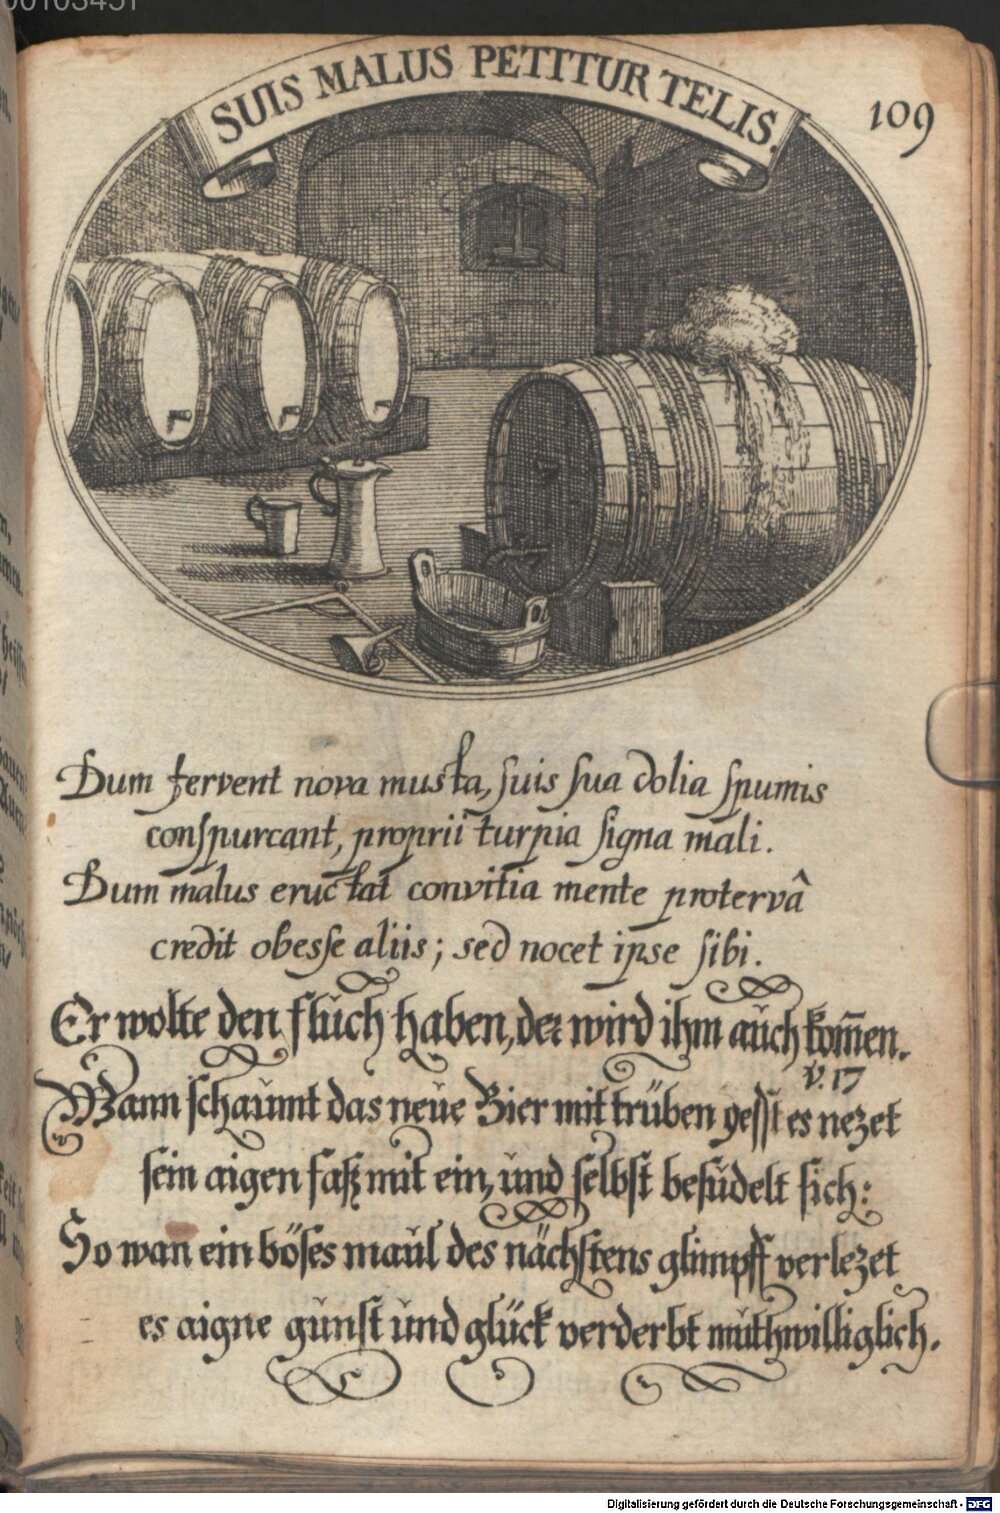 00103451
SUIS MALUS PETITUR TELIS.
109
Dum fervent nova musta, suis sua dolia spumis
conspurcant, proprii turpia signa mali.
Dum malus eructat convitia mente protervâ
credit obesse aliis; sed nocet ipse sibi.
Er wolte den flůch haben, der wird ihm aůch kom̄en.
v. 17
Wann schaůmt das neůe Bier mit trüben gesst es nezet
sein aigen faß mit ein, ůnd selbst besůdelt sich:
So wan ein böses maůl des nächstens glimpff verlezet
es aigne gůnst ůnd glück verderbt můthwilliglich.
Digitalisierung gefördert durch die Deutsche Forschungsgemeinschaft - DFG